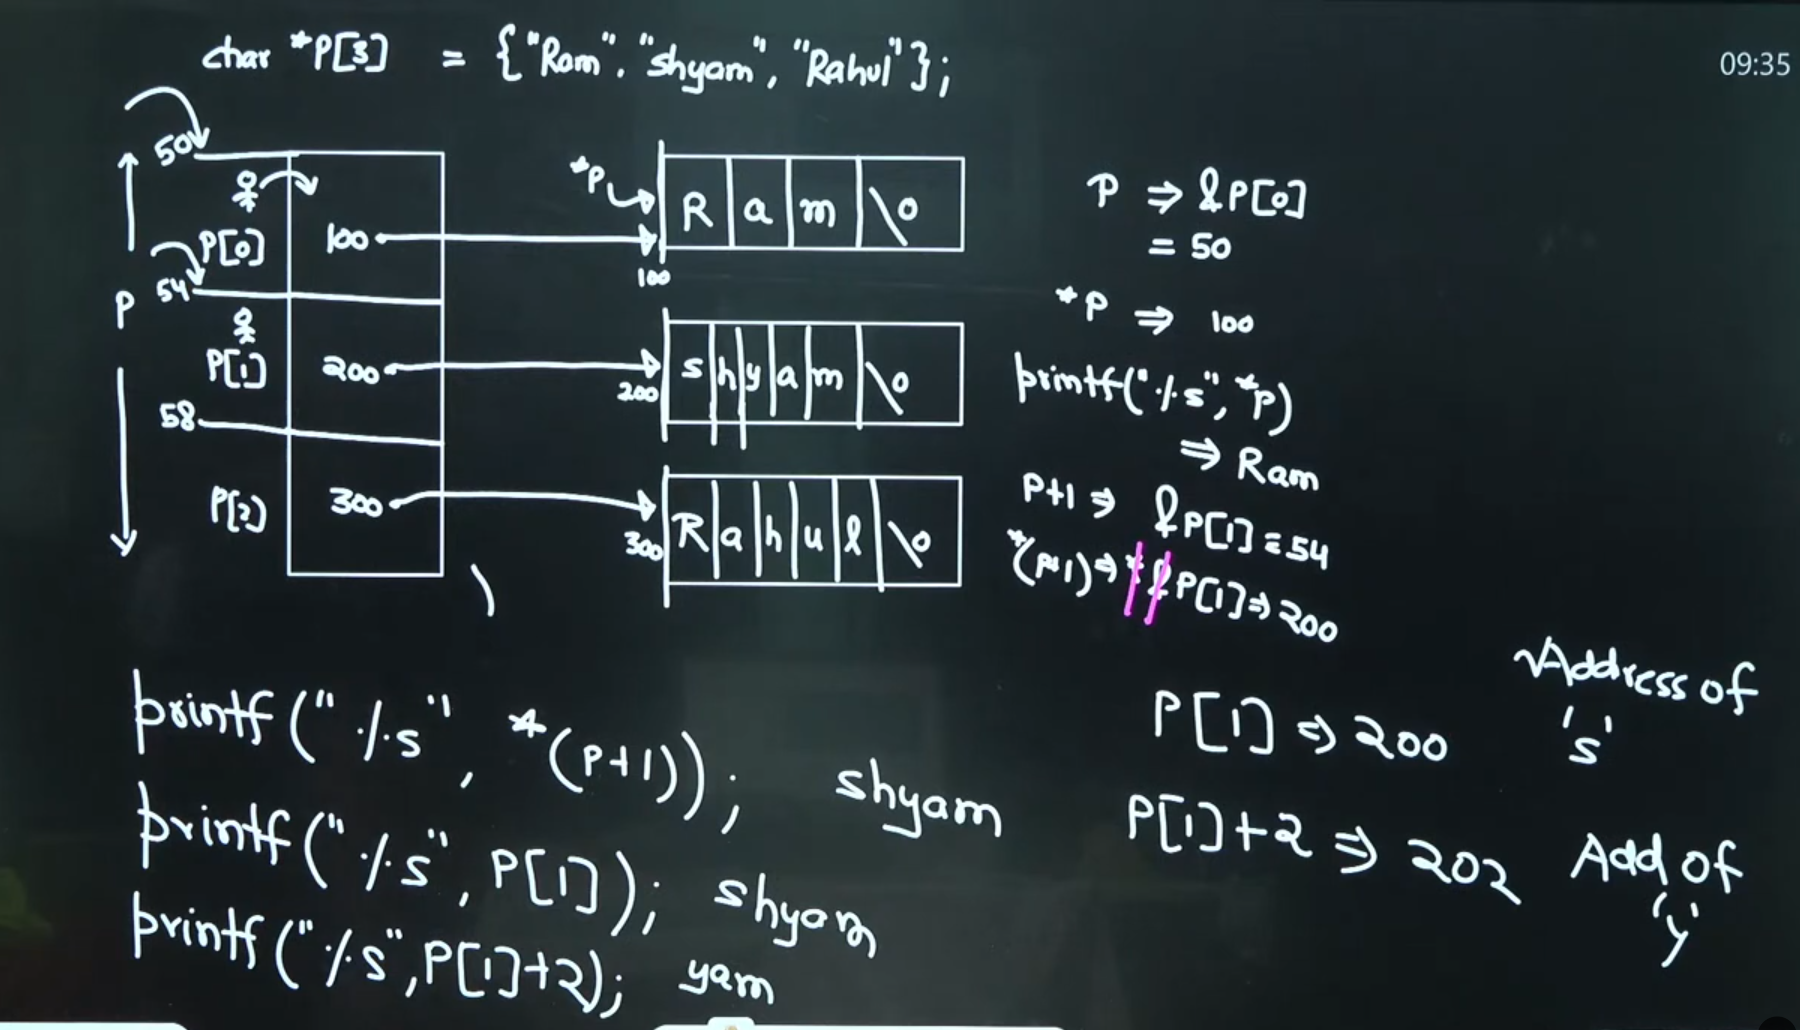 char *P[3] = {"Ram". "shyam", "Rahul"};
09:35
50
P[0] 100
*P
R a m \0
100
P
54
P[1] 200
200
s h y a m \0
58
P[2] 300
300
R a h u l \0
P ⇒ &P[0]
= 50
*P ⇒ 100
printf("%s", *P)
⇒ Ram
P+1 ⇒ &P[1] = 54
*(P+1) ⇒ *&P[1] ⇒ 200
printf("%s", *(P+1)); shyam
printf("%s", P[1]); shyam
printf("%s", P[1]+2); yam
P[1] ⇒ 200 Address of 's'
P[1]+2 ⇒ 202 Add of 'y'